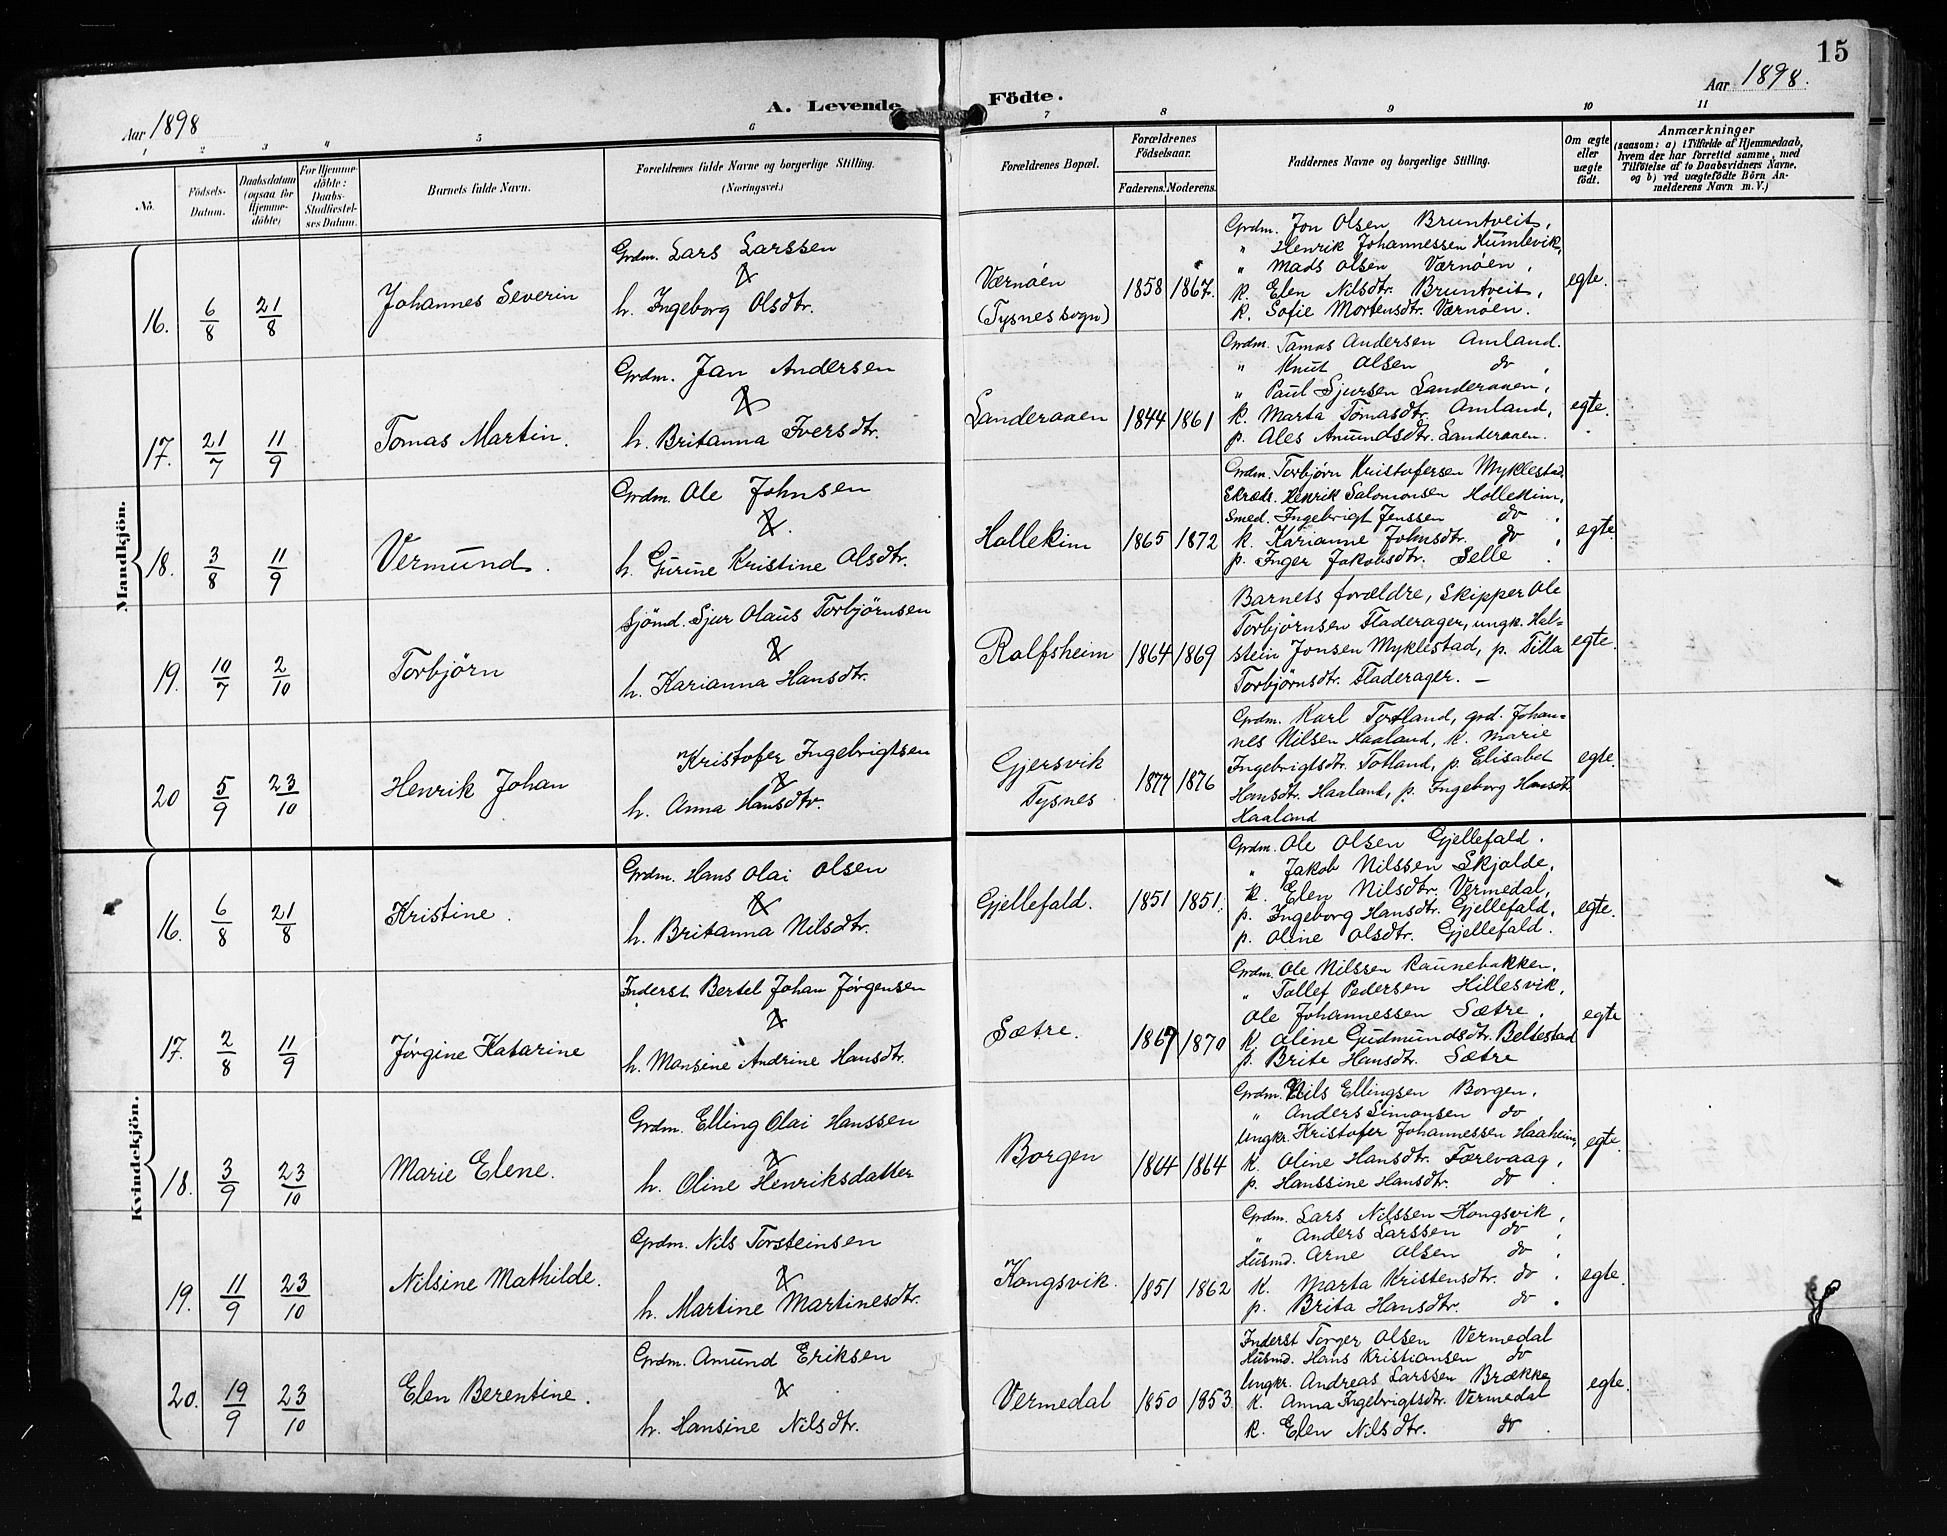 15
Aar 1898
A. Levende Födte.
Aar 1898.
1 2 3 4 5 6 7 8 9 10 11
No.
Födsels-Datum.
Daabsdatum (ogsaa for Hjemme-döbte)
For Hjemme-döbte: Daabs-Stadfæstel-ses Datum.
Barnets fulde Navn.
Forældrenes fulde Navne og borgerlige Stilling. (Næringsvei.)
Forældrenes Bopæl.
Forældrenes Födselsaar.
Faderens. Moderens.
Faddernes Navne og borgerlige Stilling.
Om ægte eller uægte födt.
Anmærkninger
(saasom: a) i Tilfælde af Hjemmedaab, hvem der har forrettet samme, med Tilföielse af to Daabsvidners Navne. og b) ved uægtefödte Börn An-melderens Navn m. V.)
Mandkjön.
16. 6/8 21/8 Johannes Severin
Grdm. Lars Larssen
&
h. Ingeborg Olsdtr.
Værnøen
(Tysnes sogn)
1858 1867.
Grdm. Jon Olsen Bruntveit,
" Henrik Johannessen Humlevik,
" Mads Olsen Værnøen,
k. Elen Nilsdtr. Bruntveit,
k. Sofie Mortensdtr. Værnøen.
egte.
17. 21/7 11/9 Tomas Martin.
Grdm. Jan Andersen
&
h. Britanna Iversdtr.
Landeraaen 1844 1861
Grdm. Tomas Andersen Amland.
" Knut Olsen do,
" Paul Sjursen Landeraaen,
k. Marta Tomasdtr. Amland,
p. Ales Amundsdtr. Landeraaen.
egte.
18. 3/8 11/9 Vermund.
Grdm. Ole Johnsen
&
h. Gurine Kristine Olsdtr.
Hollekim 1865 1872
Grdm. Torbjørn Kristofersen Myklestad
Skræd. Henrik Salomonsen Hollekim,
Smed. Ingebrigt Jenssen do,
k. Karianne Johnsdtr. do,
p. Inger Jakobsdtr. Selle.
egte.
19. 10/7 2/10 Torbjörn
Sjömd. Sjur Olaus Torbjørnsen
&
h. Karianna Hansdtr.
Rolfsheim 1864 1869
Barnets forældre, Skipper Ole
Torbjørnsen Fladerager, ungk. Hal=
stein Jonsen Myklestad, p. Tilla
Torbjørnsdtr. Fladerager. –
egte.
20 5/9 23/10 Henrik Johan
Kristofer Ingebrigtsen
&
h. Anna Hansdtr.
Gjersvik
Tysnes
1877 1876
Grdm. Karl Totland, grd. Johan=
nes Nilsen Haaland, k. Marie
Ingebrigtsdtr. Totland, p. Elisabet
Hansdtr. Haaland, p. Ingeborg Hansdtr.
Haaland
egte.
Kvindekjön.
16. 6/8 21/8 Kristine.
Grdm. Hans Olai Olsen
&
h. Britanna Nilsdtr.
Gjellefald. 1851 1851.
Grdm. Ole Olsen Gjellefald.
" Jakob Nilssen Skjolde,
k. Elen Nilsdtr. Vermedal,
p. Ingeborg Hansdtr. Gjellefald,
p. Oline Olsdtr. Gjellefald.
egte.
17. 2/8 11/9 Jørgine Katarine
Inderst Bertel Johan Jørgensen
&
h. Mansine Andrine Hansdtr.
Sætre. 1867 1870
Grdm. Ole Nilssen Raunebakken,
" Tollef Pedersen Hillesvik,
Ole Johannessen Sætre,
k. Oline Gudmundsdtr. Beltestad
p. Brite Hansdtr. Sætre
egte
18. 3/9 23/10 Marie Elene.
Grdm. Elling Olai Hanssen
&
h. Oline Henriksdatter
Borgen 1864 1864
Grdm. Nils Ellingsen Borgen,
" Anders Simonsen do,
Ungkr. Kristofer Johannessen Haaheim,
k. Oline Hansdtr. Færevaag,
p. Hanssine Hansdtr. do.
egte.
19. 11/9 23/10 Nilsine Mathilde.
Grdm. Nils Torsteinsen
&
h. Martine Martinesdtr.
Kongsvik. 1851 1862
Grdm. Lars Nilssen Kongsvik,
" Anders Larssen do,
Husmd. Arne Olsen do,
k. Marta Kristensdtr. do,
p. Brita Hansdtr. do.
egte.
20. 19/9 23/10 Elen Berentine.
Grdm. Amund Eriksen
&
h. Hansine Nilsdtr.
Vermedal 1850 1853.
Inderst Torger Olsen Vermedal
Husmd. Hans Kristiansen do
Ungkr. Andreas Larssen Brække
k. Anna Ingebrigtsdtr. Vermedal
k. Elen Nilsdtr. do.
egte.